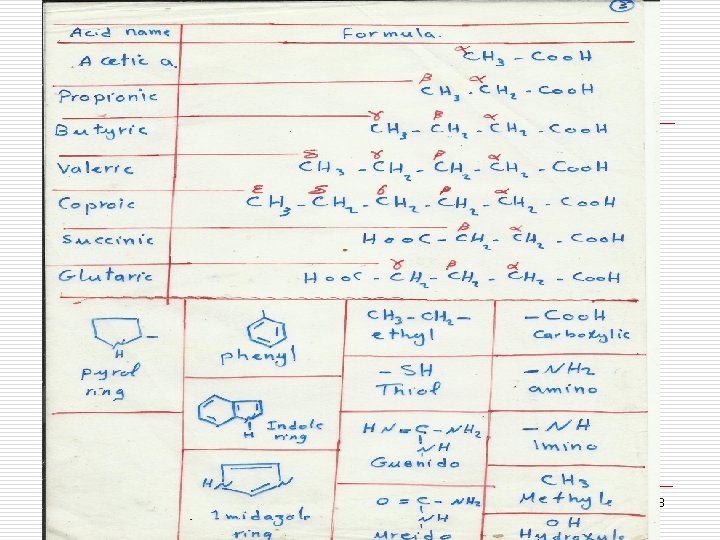 3
Acid name Formula.
Acetic a. α CH3 - COOH
Propionic β α CH3 - CH2 - COOH
Butyric γ β α CH3 - CH2 - CH2 - COOH
Valeric δ γ β α CH3 - CH2 - CH2 - CH2 - COOH
Coproic ε δ γ β α CH3 - CH2 - CH2 - CH2 - CH2 - COOH
Succinic β α HOOC - CH2 - CH2 - COOH
Glutaric γ β α HOOC - CH2 - CH2 - CH2 - COOH
N
H
pyrol
ring
phenyl
CH3 - CH2 -
ethyl
- COOH
Carboxylic
- SH
Thiol
- NH2
amino
N
H
Indole
ring
HN = C - NH2
NH
Guanido
- NH
Imino
HN N
Imidazole
ring
O = C - NH2
NH
Ureido
CH3
Methyle
OH
Hydroxyle
3